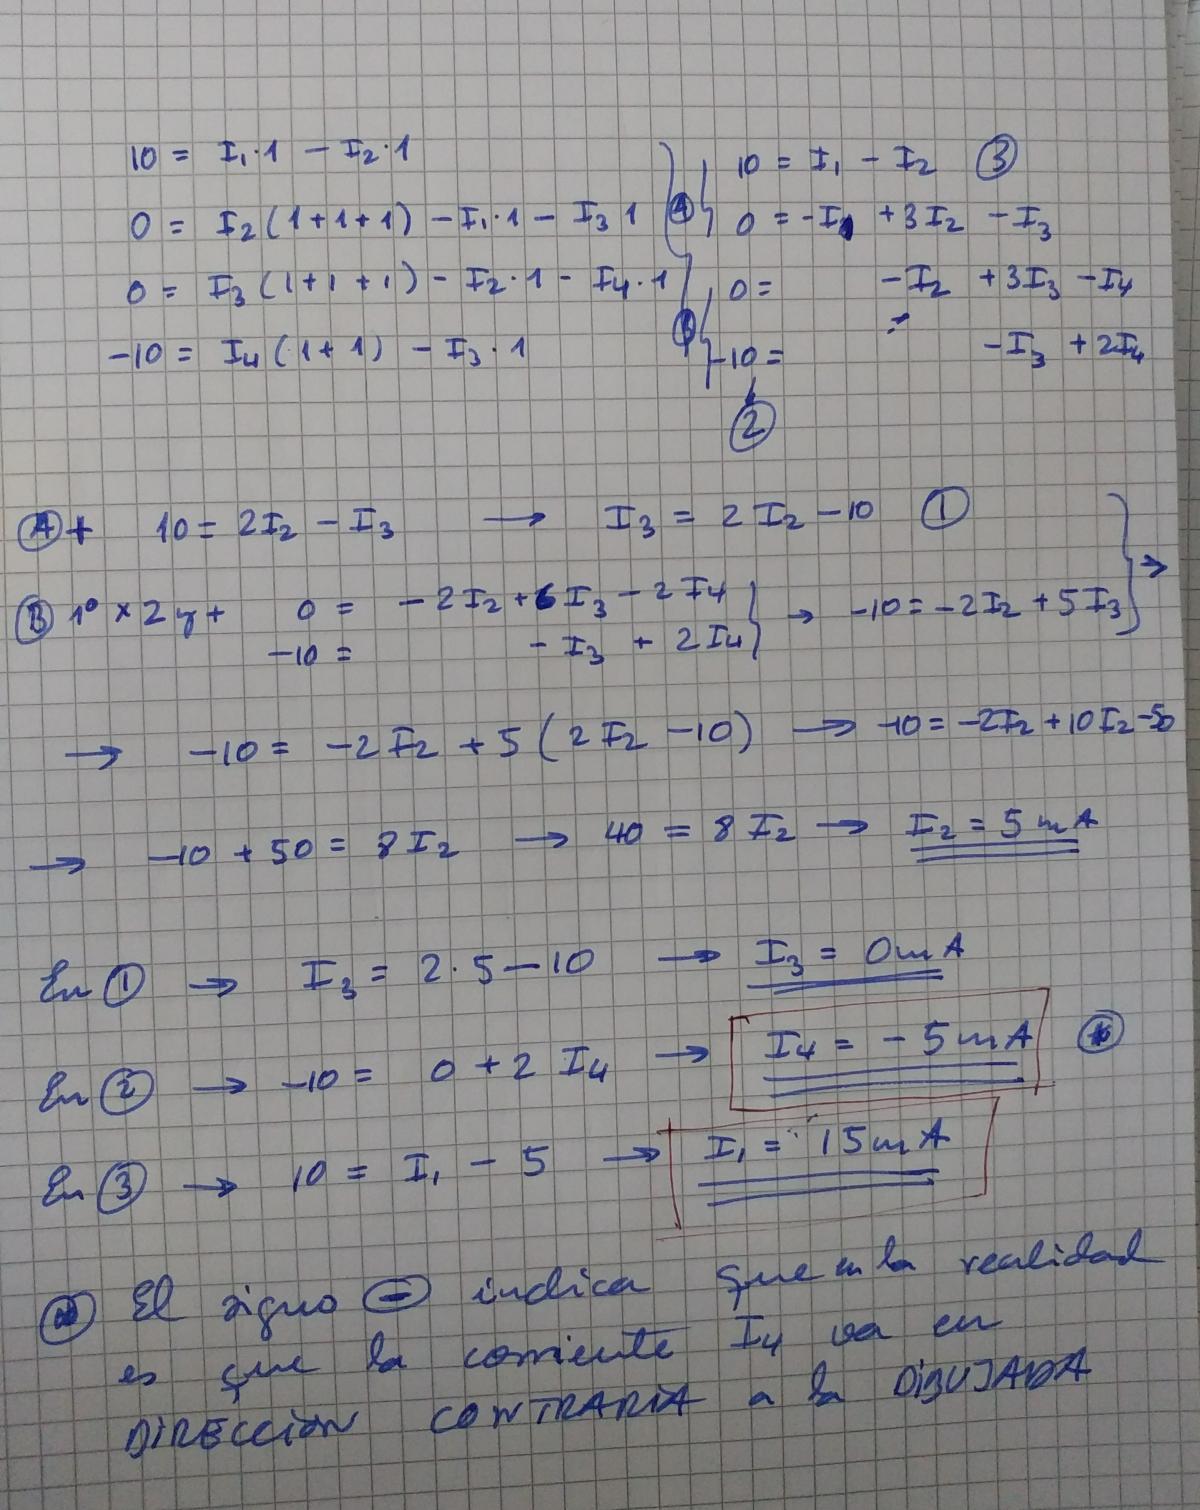 10 = I₁·1 − I₂·1
0 = I₂(1+1+1) − I₁·1 − I₃ 1
0 = I₃(1+1+1) − I₂·1 − I₄·1
−10 = I₄(1+1) − I₃·1
A
B
10 = I₁ − I₂ ③
0 = −I₁ + 3I₂ − I₃
0 = −I₂ + 3I₃ − I₄
−10 = −I₃ + 2I₄
②
Ⓐ + 10 = 2I₂ − I₃ → I₃ = 2I₂ − 10 ①
Ⓑ 1º × 2 y + 0 = −2I₂ + 6I₃ − 2I₄ → −10 = −2I₂ + 5I₃ →
−10 = − I₃ + 2I₄
→ −10 = −2I₂ + 5(2I₂ − 10) → −10 = −2I₂ + 10I₂ − 50
→ −10 + 50 = 8I₂ → 40 = 8I₂ → I₂ = 5mA
En ① → I₃ = 2·5 − 10 → I₃ = 0mA
En ② → −10 = 0 + 2 I₄ → I₄ = −5mA ⊛
En ③ → 10 = I₁ − 5 → I₁ = 15mA
⊛ El signo ⊖ indica que en la realidad
es que la corriente I₄ va en
DIRECCIÓN CONTRARIA a la DIBUJADA